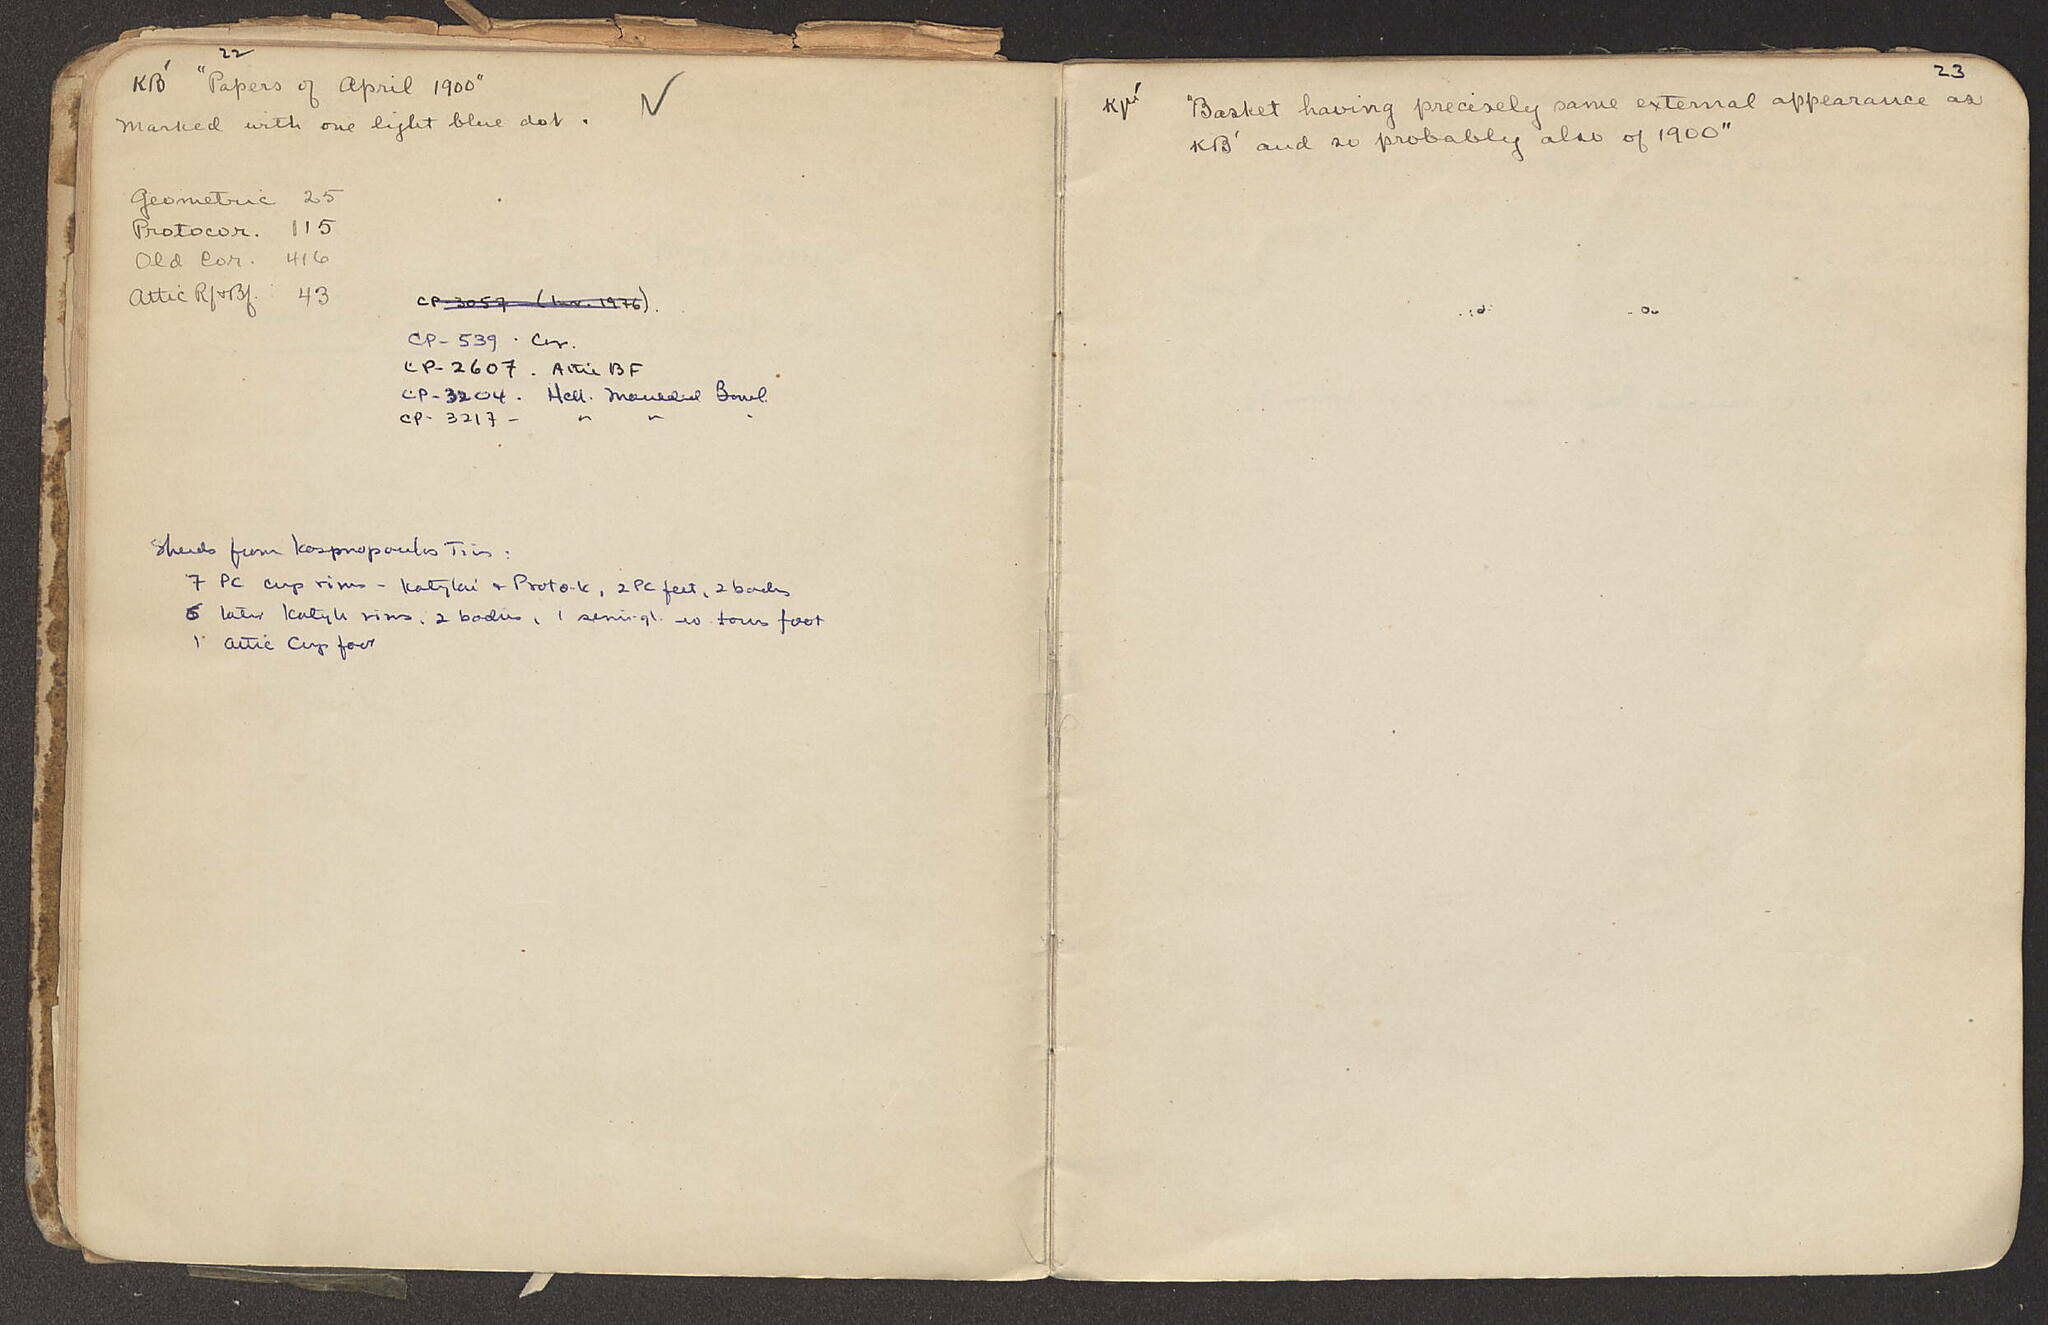 22
KB' "Papers of April 1900"
Marked with one light blue dot.
Geometric 25
Protocor. 115
Old Cor. 416
Attic Rf + Bf. 43
CP-3057 (Inv. 1976).
CP-539 · Cor.
CP-2607. Attic BF
CP-3204. Hell. Moulded Bowl.
CP-3217 - " " "
Sherds from Tins:
7 PC cup rims - Kotylai + Proto-k, 2 PC feet, 2 bodies
6 later Kotyle rims, 2 bodies, 1 semi-gl. torus foot
1 Attic Cup foot
23
Kμ' "Basket having precisely same external appearance as
KB' and so probably also of 1900"